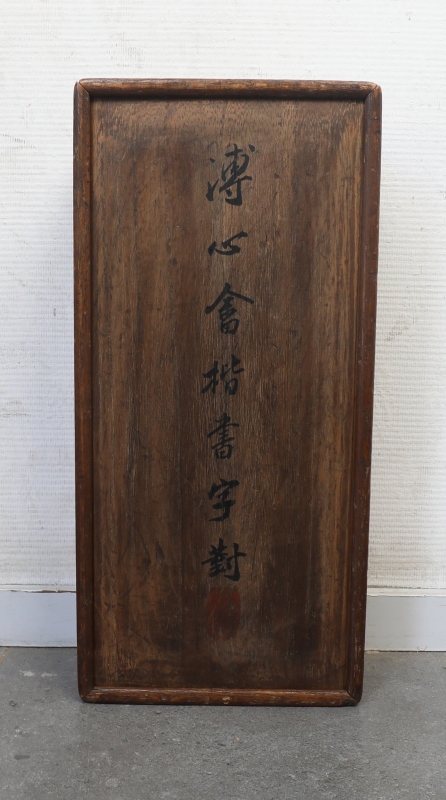 溥心畬楷書字對